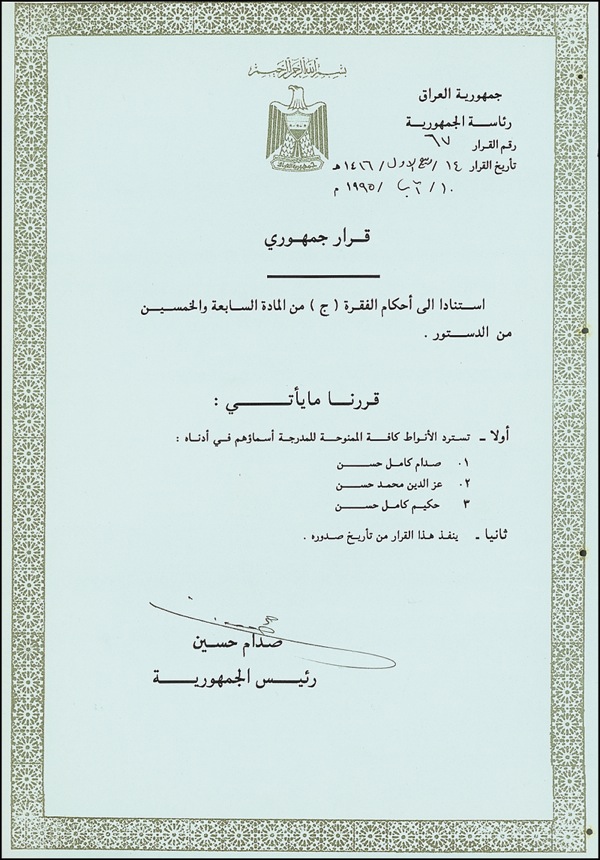 بسم الله الرحمن الرحيم
جمهورية العراق
رئاسة الجمهورية
رقم القرار ٦٧
تأريخ القرار ١٤ / ربيع الاول / ١٤١٦ هـ
١٠ / آب / ١٩٩٥ م
قرار جمهوري
استنادا الى أحكام الفقرة ( ج ) من المادة السابعة والخمسين
من الدستور .
قررنا مايأتي :
أولا - تسترد الأنواط كافة الممنوحة للمدرجة أسماؤهم في أدناه :
٠١ صدام كامل حسن
٠٢ عز الدين محمد حسن
٣ حكيم كامل حسن
ثانيا - ينفذ هذا القرار من تأريخ صدوره .
صدام حسين
رئيس الجمهورية